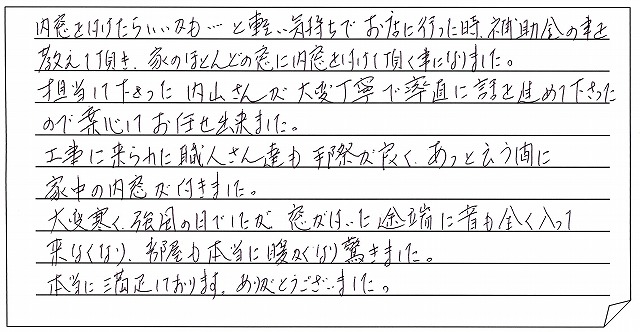 内窓を付けたらいいかも…と軽い気持ちでお店に行った時、補助金の事を
教えて頂き、家のほとんどの窓に内窓を付けて頂く事になりました。
担当して下さった内山さんが大変丁寧で率直に話を進めて下さった
ので安心してお任せ出来ました。
工事に来られた職人さん達も手際が良く、あっと云う間に
家中の内窓が付きました。
大変寒く、強風の日でしたが、窓がはいった途端に音も全く入って
来なくなり、お部屋も本当に暖かくなり驚きました。
本当に満足しております。ありがとうございました。